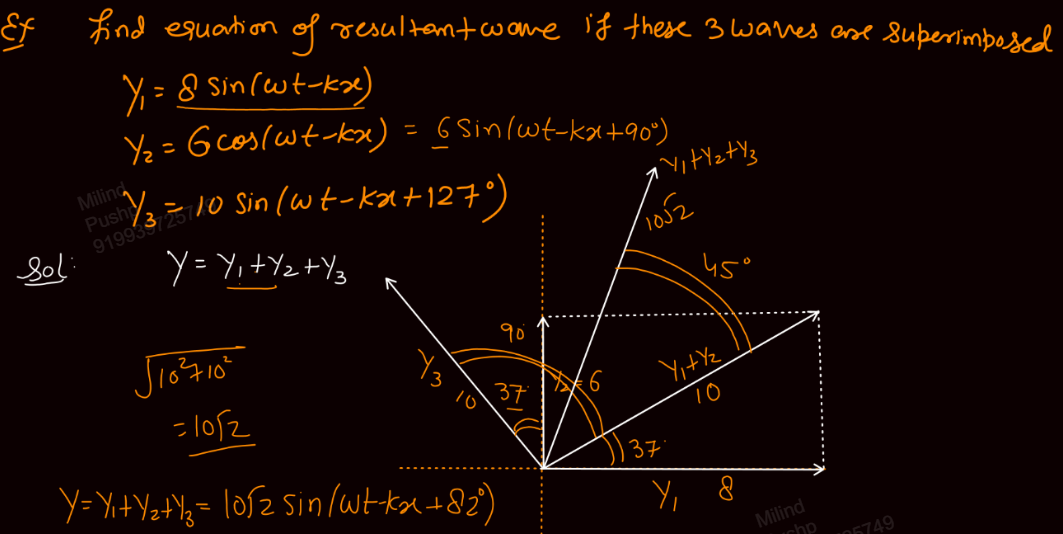 Ex find equation of resultant wave if these 3 waves are superimposed
Y₁ = 8 sin(ωt-kx)
Y₂ = 6 cos(ωt-kx) = 6 sin(ωt-kx+90°)
Y₃ = 10 sin(ωt-kx+127°)
Milind
Pushp
Sol: Y = Y₁+Y₂+Y₃
Y₁+Y₂+Y₃
10√2
45°
90
Y₃
10
37
Y₂=6
Y₁+Y₂
10
37
Y₁ 8
√10²+10²
=10√2
Y=Y₁+Y₂+Y₃= 10√2 sin(ωt-kx+82°)
Milind